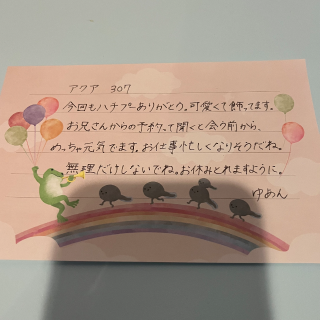 アクア 307
今回もハチプ〜ありがとう。可愛くて飾ってます。
お兄さんからの予約って聞くと会う前から、
めっちゃ元気でます。お仕事忙しくなりそうだね。
無理だけしないでね。お休みとれますように。
ゆあん